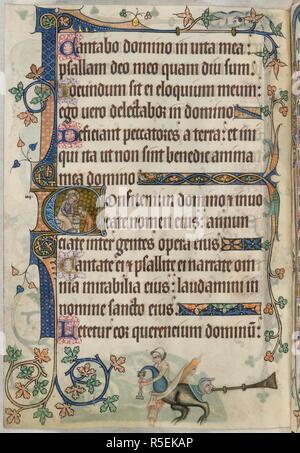 Cantabo domino in uita mea:
psallam deo meo quam diu sum
Iocundum sit ei eloquium meum
ego uero delectabor in domino
Deficiant peccatores a terra: et ini
qui ita ut non sint benedic anima
mea domino
Confitemini domino et inuo
cate nomen eius: annun
ciate inter gentes opera eius
Cantate ei et psallite ei narrate omi
nia mirabilia eius: laudamini in
nomine sancto eius
Letetur cor querencium dominum:
alamy
www.alamy.com - R5EKAP